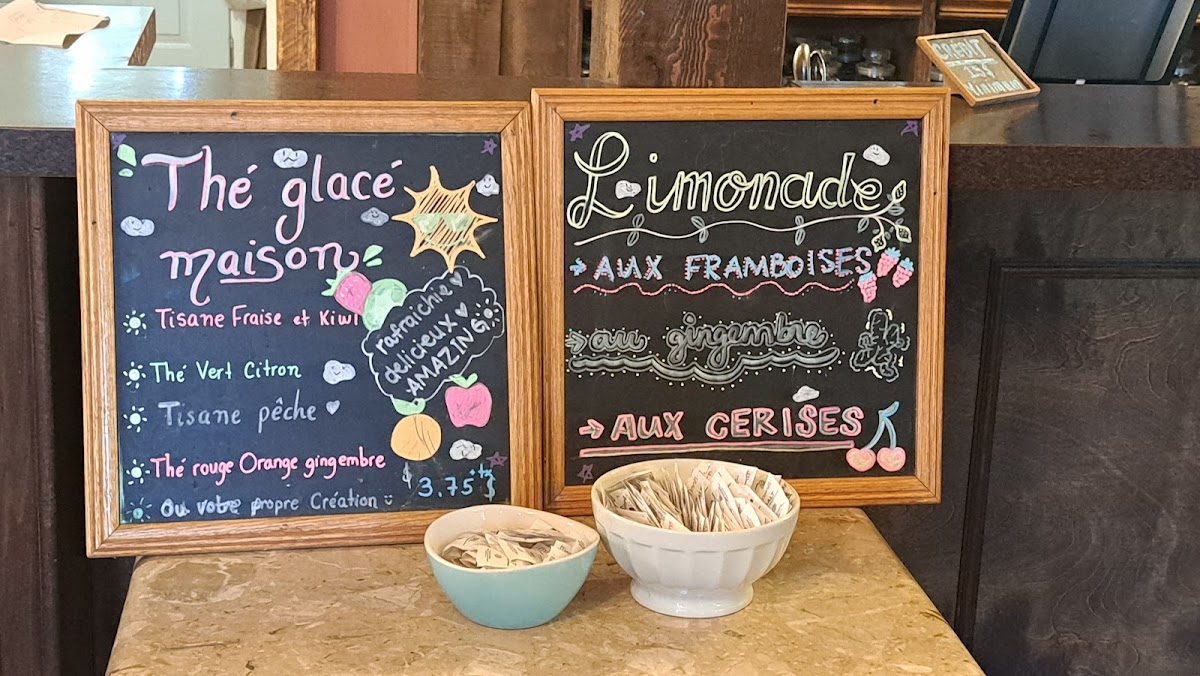 Thé glacé
maison
Tisane Fraise et Kiwi
rafraichie
délicieux
AMAZING
Thé Vert Citron
Tisane pêche
Thé rouge Orange gingembre
3.75 $
Ou votre propre Création
Limonade
AUX FRAMBOISES
au gingembre
AUX CERISES
CREDIT